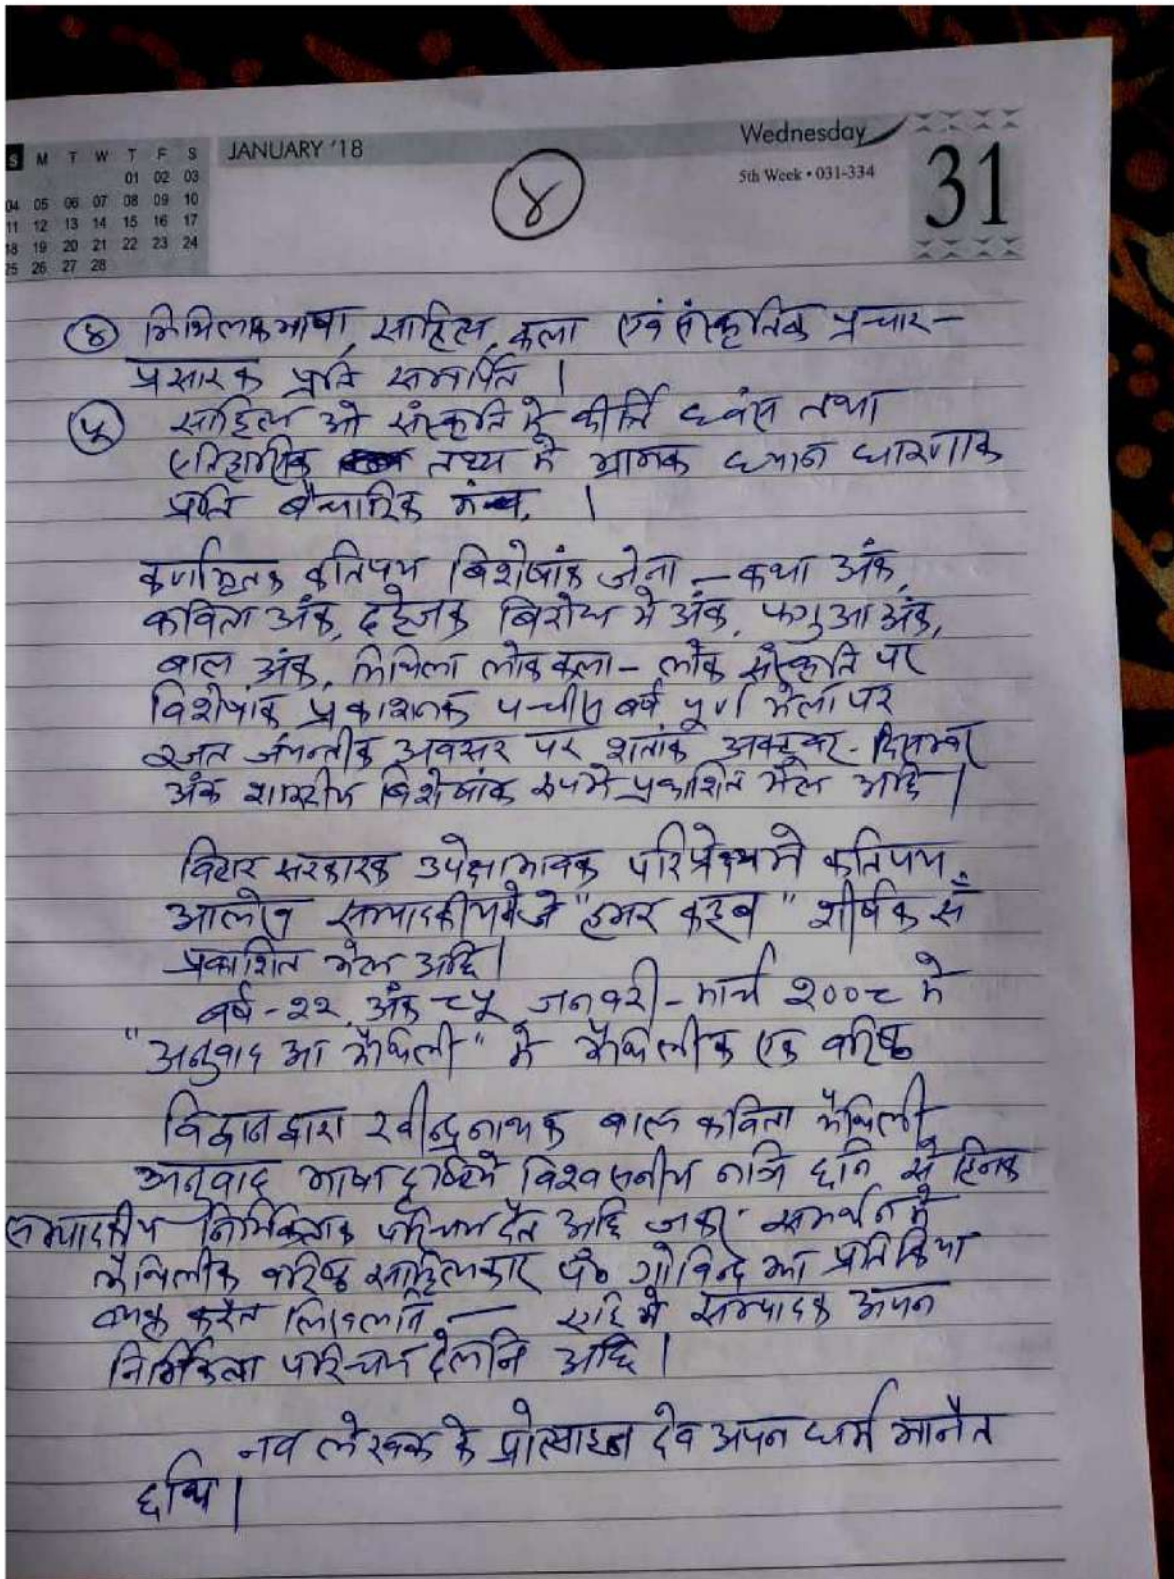 S M T W T F S
01 02 03
04 05 06 07 08 09 10
11 12 13 14 15 16 17
18 19 20 21 22 23 24
25 26 27 28
JANUARY '18
Wednesday
5th Week • 031-334
31
४
४ मिथिलाक भाषा, साहित्य, कला एवं संस्कृतिक प्रचार-
प्रसारक प्रति समर्पित ।
५ साहित्य ओ संस्कृति मे कीर्ति ध्वंस तथा
एतिहासिक तथ्य मे भ्रामक ध्यान धारणाक
प्रति बैचारिक मंच, ।
कर्णामृतक कतिपय बिशेषांक जेना - कथा अंक,
कविता अंक, दहेजक बिरोध मे अंक, फगुआ अंक,
बाल अंक, मिथिला लोककला - लोक संस्कृति पर
विशेषांक प्रकाशनक पच्चीस बर्ष पूर्ण भेला पर
रजत जयन्तीक अवसर पर शतांक अक्टूबर - दिसम्बर
अंक शास्त्रीय बिशेषांक रूपमे प्रकाशित भेल अछि ।
बिहार सरकारक उपेक्षाभावक परिप्रेक्ष्यमे कतिपय
आलेख सम्पादकीयमे जे "हमर कहब" शीर्षक सँ
प्रकाशित भेल अछि ।
बर्ष - २२, अंक ८५ जनवरी - मार्च २००८ मे
"अनुवाद आ मैथिली" मे मैथिलीक एक वरिष्ठ
विद्वान द्वारा रवीन्द्रनाथक बाल कविता मैथिली
अनुवाद भाषा दृष्टिये विश्वसनीय नञि छनि से हिनक
सम्पादकीय निर्भिकताक परिचय दैत अछि जकर समर्थन मे
मैथिलीक वरिष्ठ साहित्यकार पं० गोविन्द झा प्रतिक्रिया
ब्यक्त करैत लिखलनि — एहि मे सम्पादक अपन
निर्भिकता परिचय देलनि अछि ।
नव लेखक के प्रोत्साहन देव अपन धर्म मानैत
छथि ।